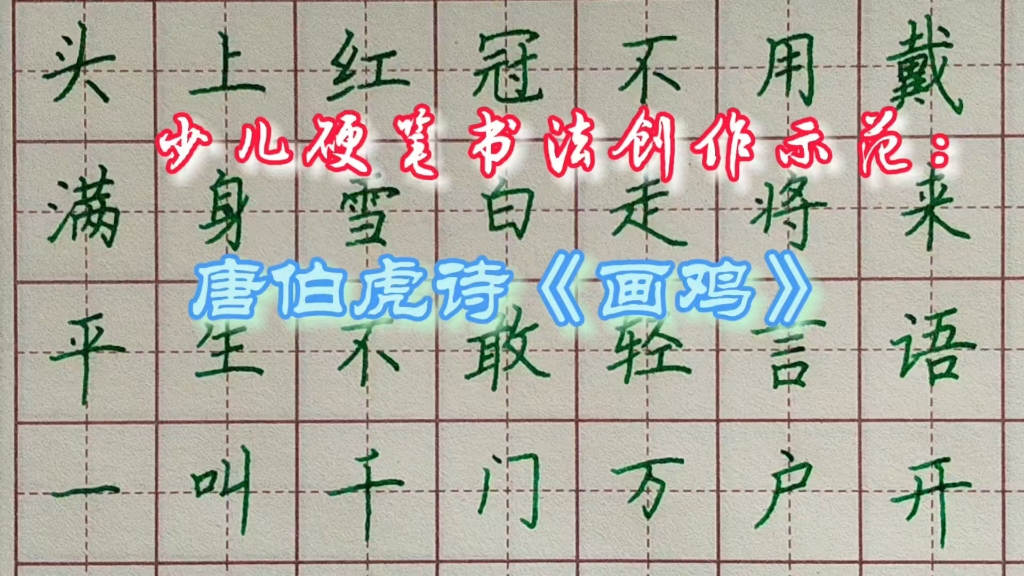 头上红冠不用戴
少儿硬笔书法创作示范：
满身雪白走将来
唐伯虎诗《画鸡》
平生不敢轻言语
一叫千门万户开